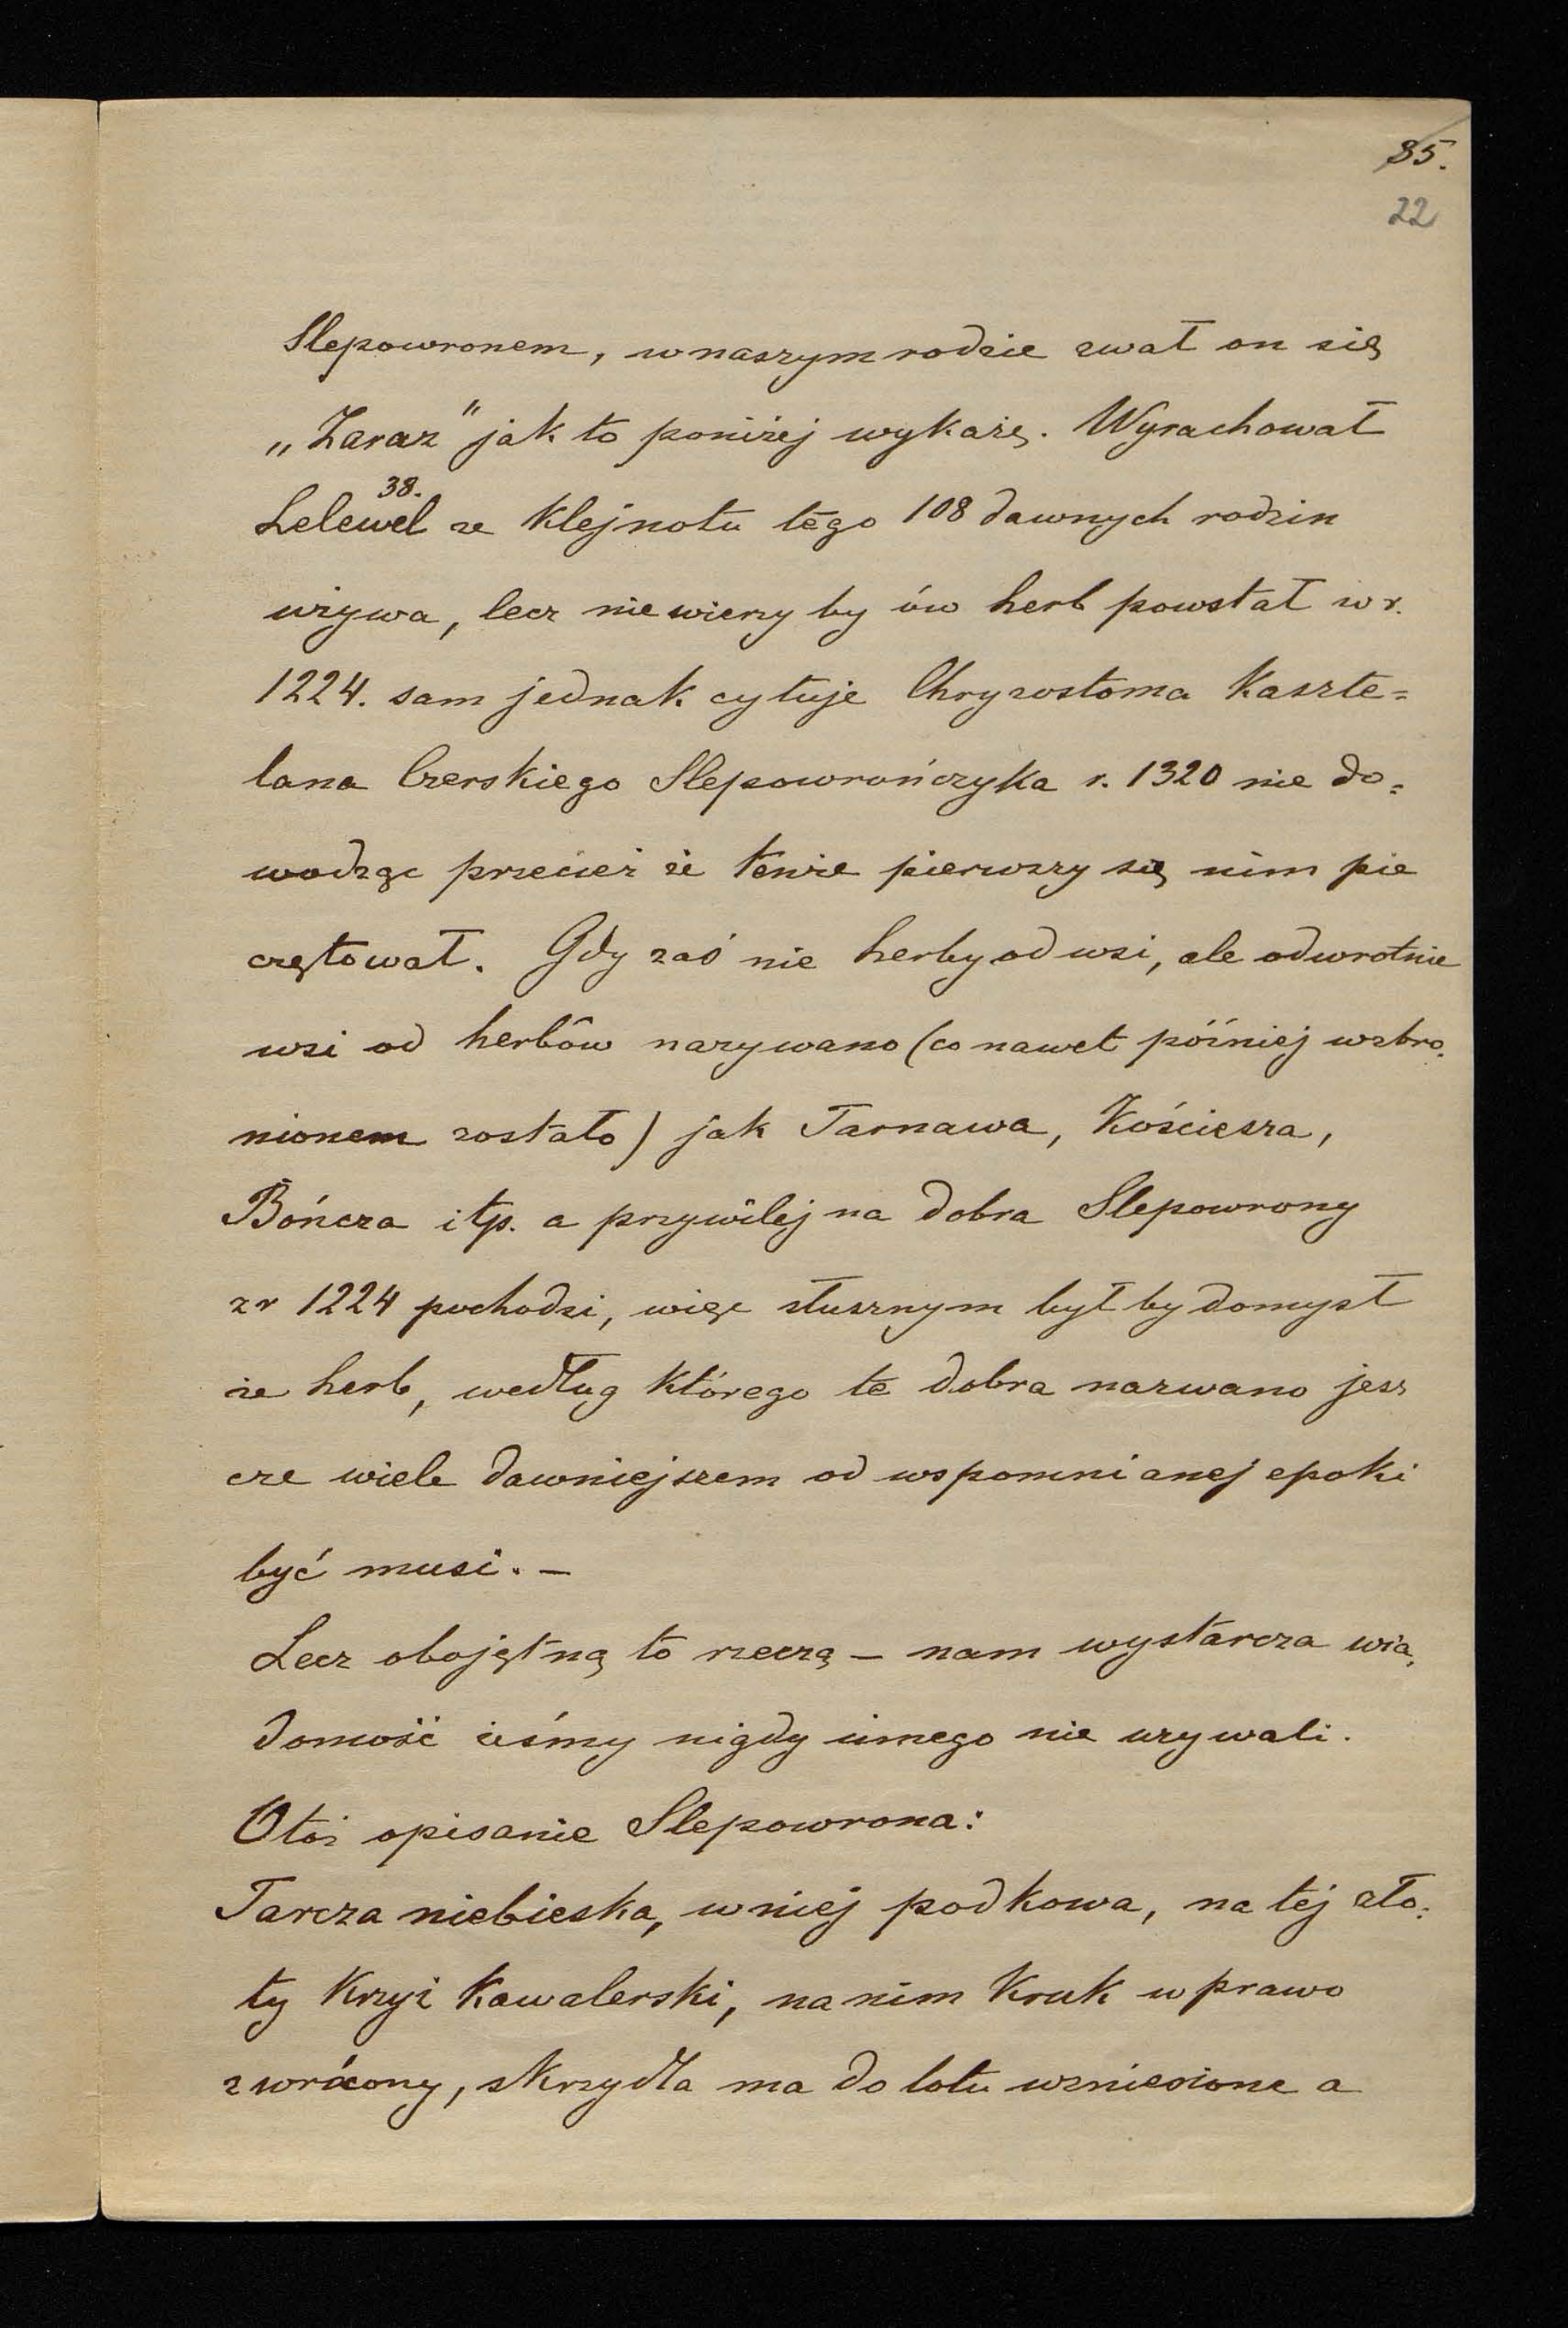 85.
22
Slepowronem, w naszym rodzie zwał on się
„Zaraz" jak to poniżej wykażę. Wyrachował
Lelewel 38. że Klejnotu tego 108 dawnych rodzin
używa, lecz nie wierzy by ów herb powstał w r.
1224. sam jednak cytuje Chryzostoma Kaszte=
lana Czerskiego Slepowrończyka r. 1320 nie do=
wodząc przecież że tenże pierwszy się nim pie
czętował. Gdy zaś nie herby od wsi, ale odwrotnie
wsi od herbów nazywano (co nawet później wzbro=
nionem zostało) jak Tarnawa, Kościesza,
Bończa itp. a przywilej na dobra Slepowrony
z r 1224 pochodzi, więc słusznym był by domysł
że herb, według którego te dobra nazwano jesz
cze wiele dawniejszem od wspomnianej epoki
być musi. –
Lecz obojętną to rzeczą – nam wystarcza wia=
domość żeśmy nigdy innego nie używali.
Otóż opisanie Slepowrona:
Tarcza niebieska, w niej podkowa, na tej zło=
ty Krzyż Kawalerski, na nim Kruk w prawo
zwrócony, skrzydła ma do lotu wzniesione a